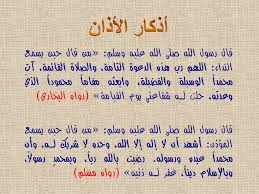 أذكار الأذان
قال رسول الله صلى الله عليه وسلم: «من قال حين يسمع
النداء: اللهم رب هذه الدعوة التامة، والصلاة القائمة، آت
محمداً الوسيلة والفضيلة، وابعثه مقاماً محموداً الذي
وعدته، حلت له شفاعتي يوم القيامة» (رواه البخاري)
قال رسول الله صلى الله عليه وسلم: «من قال حين يسمع
المؤذن: أشهد أن لا إله إلا الله، وحده لا شريك له، وأن
محمداً عبده ورسوله، رضيت بالله رباً، وبمحمد رسولاً،
وبالإسلام ديناً، غفر له ذنبه» (رواه مسلم)